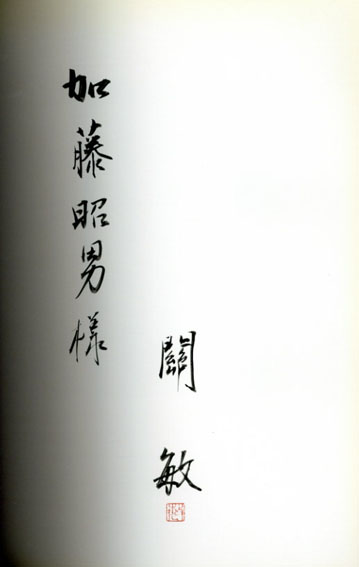 加藤昭男様
關敏